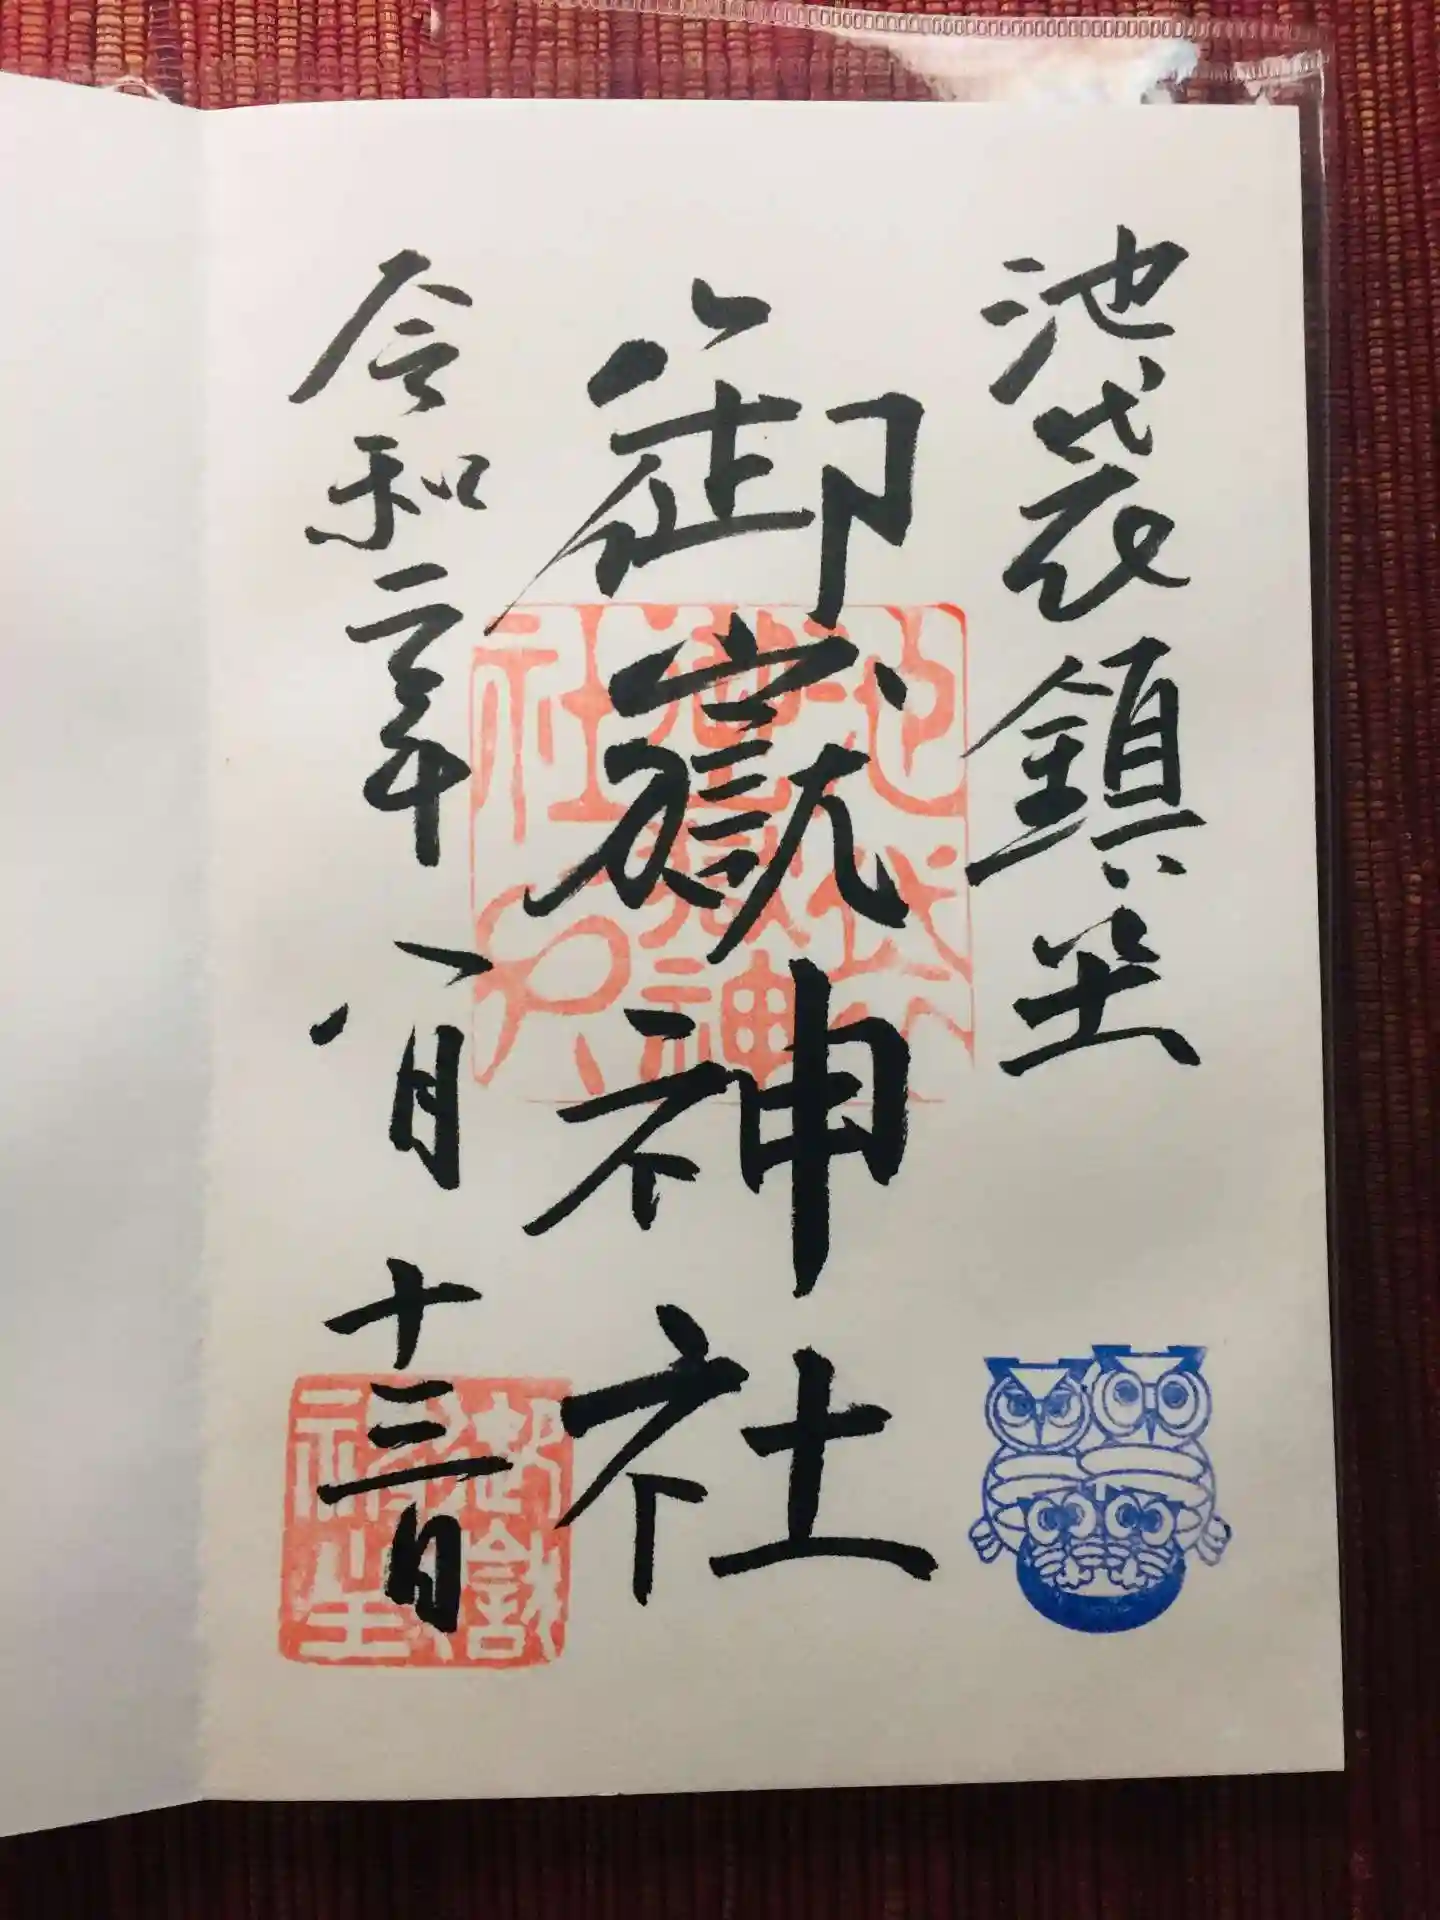 池袋鎮坐
御嶽神社
令和二年八月十三日
池袋
御嶽神
社印